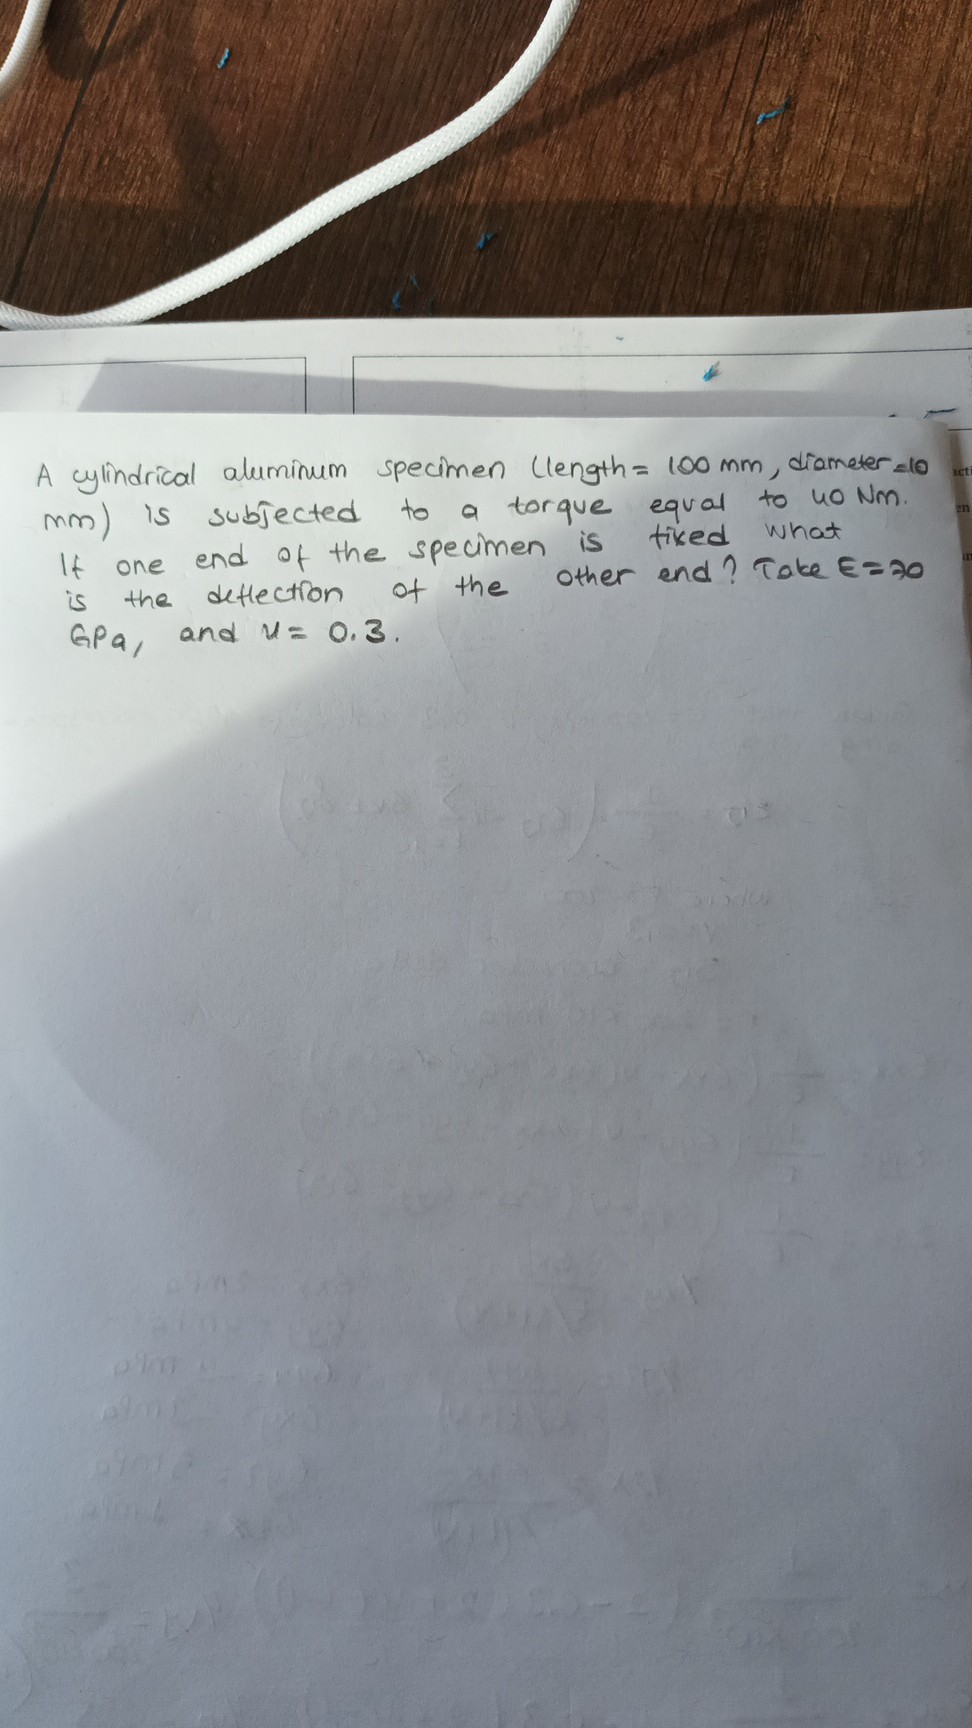 A cylindrical aluminum specimen (length = 100 mm, diameter = 10
mm) is subjected to a torque equal to 40 Nm.
If one end of the specimen is fixed what
is the deflection of the other end? Take E = 70
GPa, and ν = 0.3.